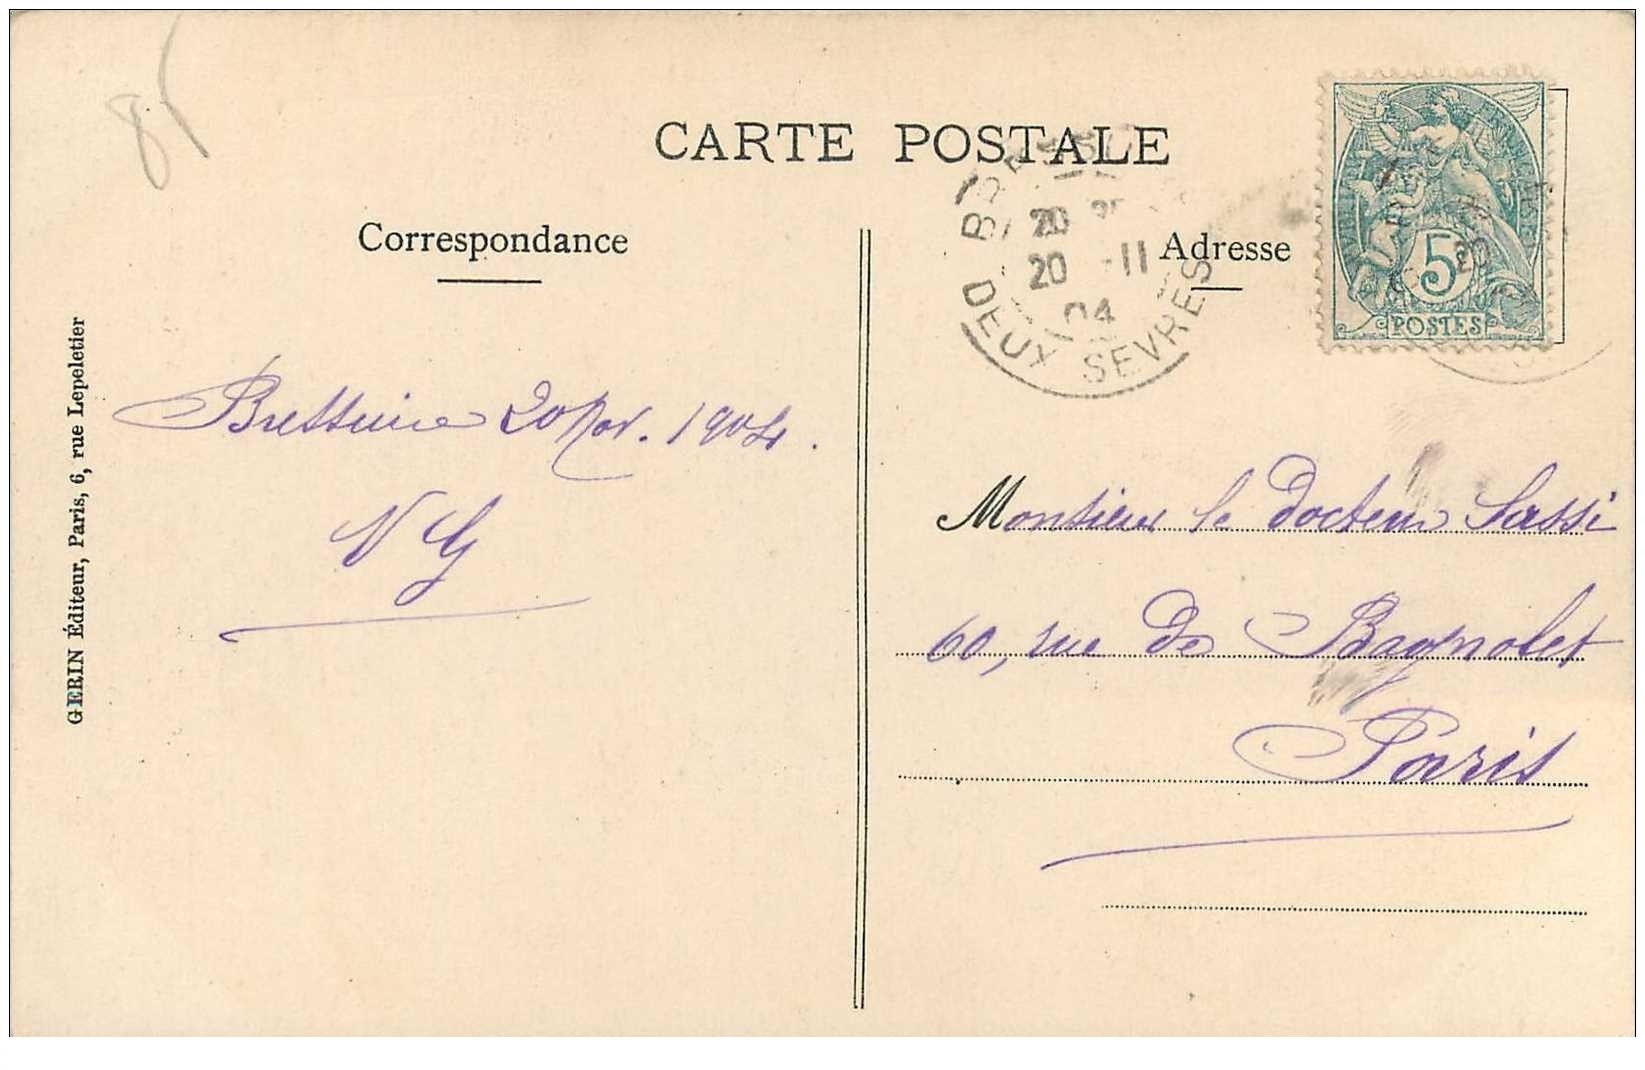 85
CARTE POSTALE
Correspondance
Adresse
5
POSTES
20
20 -11
04
DEUX SEVRES
GERIN Éditeur, Paris, 6, rue Lepeletier
Bressuire 20 Nov. 1904.
VG
Monsieur le docteur Sassi
60, rue de Bagnolet
Paris